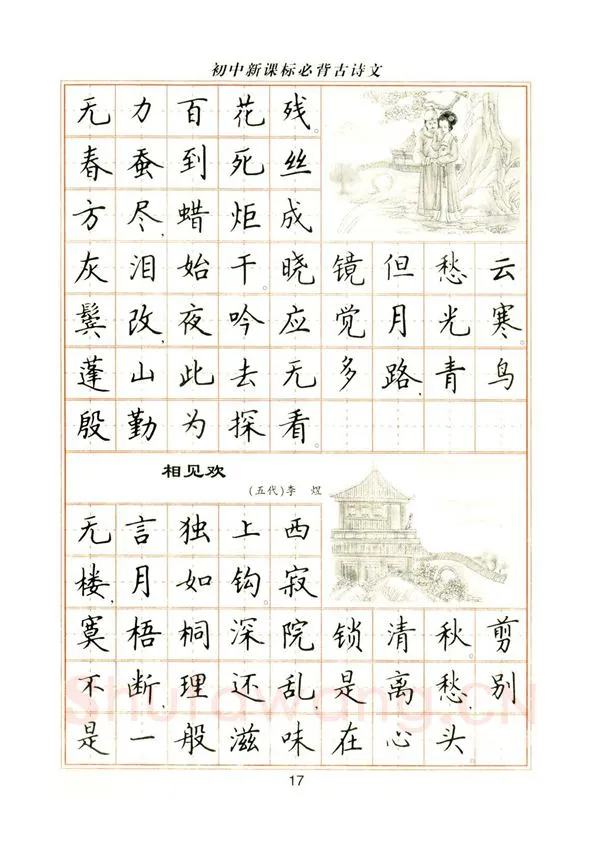 初中新课标必背古诗文
无力百花残。
春蚕到死丝
方尽，蜡炬成
灰泪始干。晓镜但愁云
鬓改，夜吟应觉月光寒。
蓬山此去无多路，青鸟
殷勤为探看。
相见欢
(五代)李 煜
无言独上西
楼，月如钩。寂
寞梧桐深院锁清秋。剪
不断，理还乱，是离愁，别
是一般滋味在心头。
Shufawang.CN
17